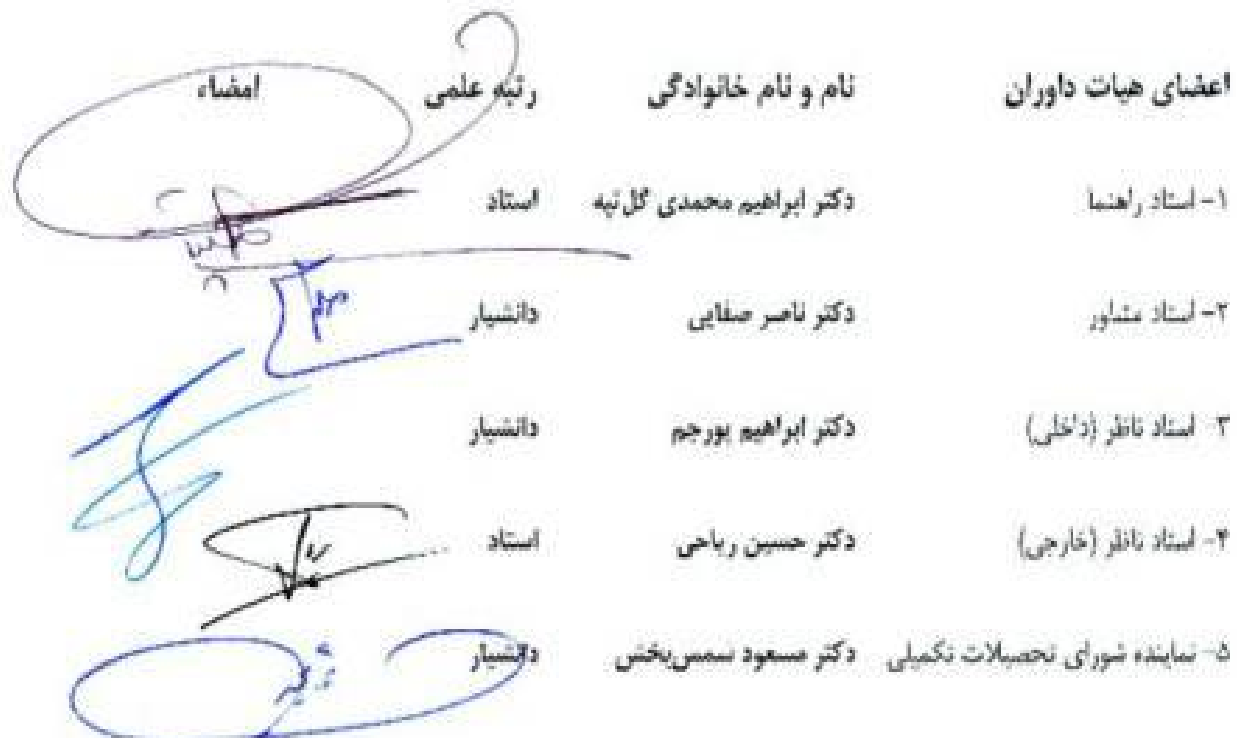 اعضای هیات داوران نام و نام خانوادگی رتبه علمی امضاء
۱- استاد راهنما دکتر ابراهیم محمدی گل‌تپه استاد
۲- استاد مشاور دکتر ناصر صفایی دانشیار
۳- استاد ناظر (داخلی) دکتر ابراهیم پورجم دانشیار
۴- استاد ناظر (خارجی) دکتر حسین ریاحی استاد
۵- نماینده شورای تحصیلات تکمیلی دکتر مسعود شمس‌بخش دانشیار